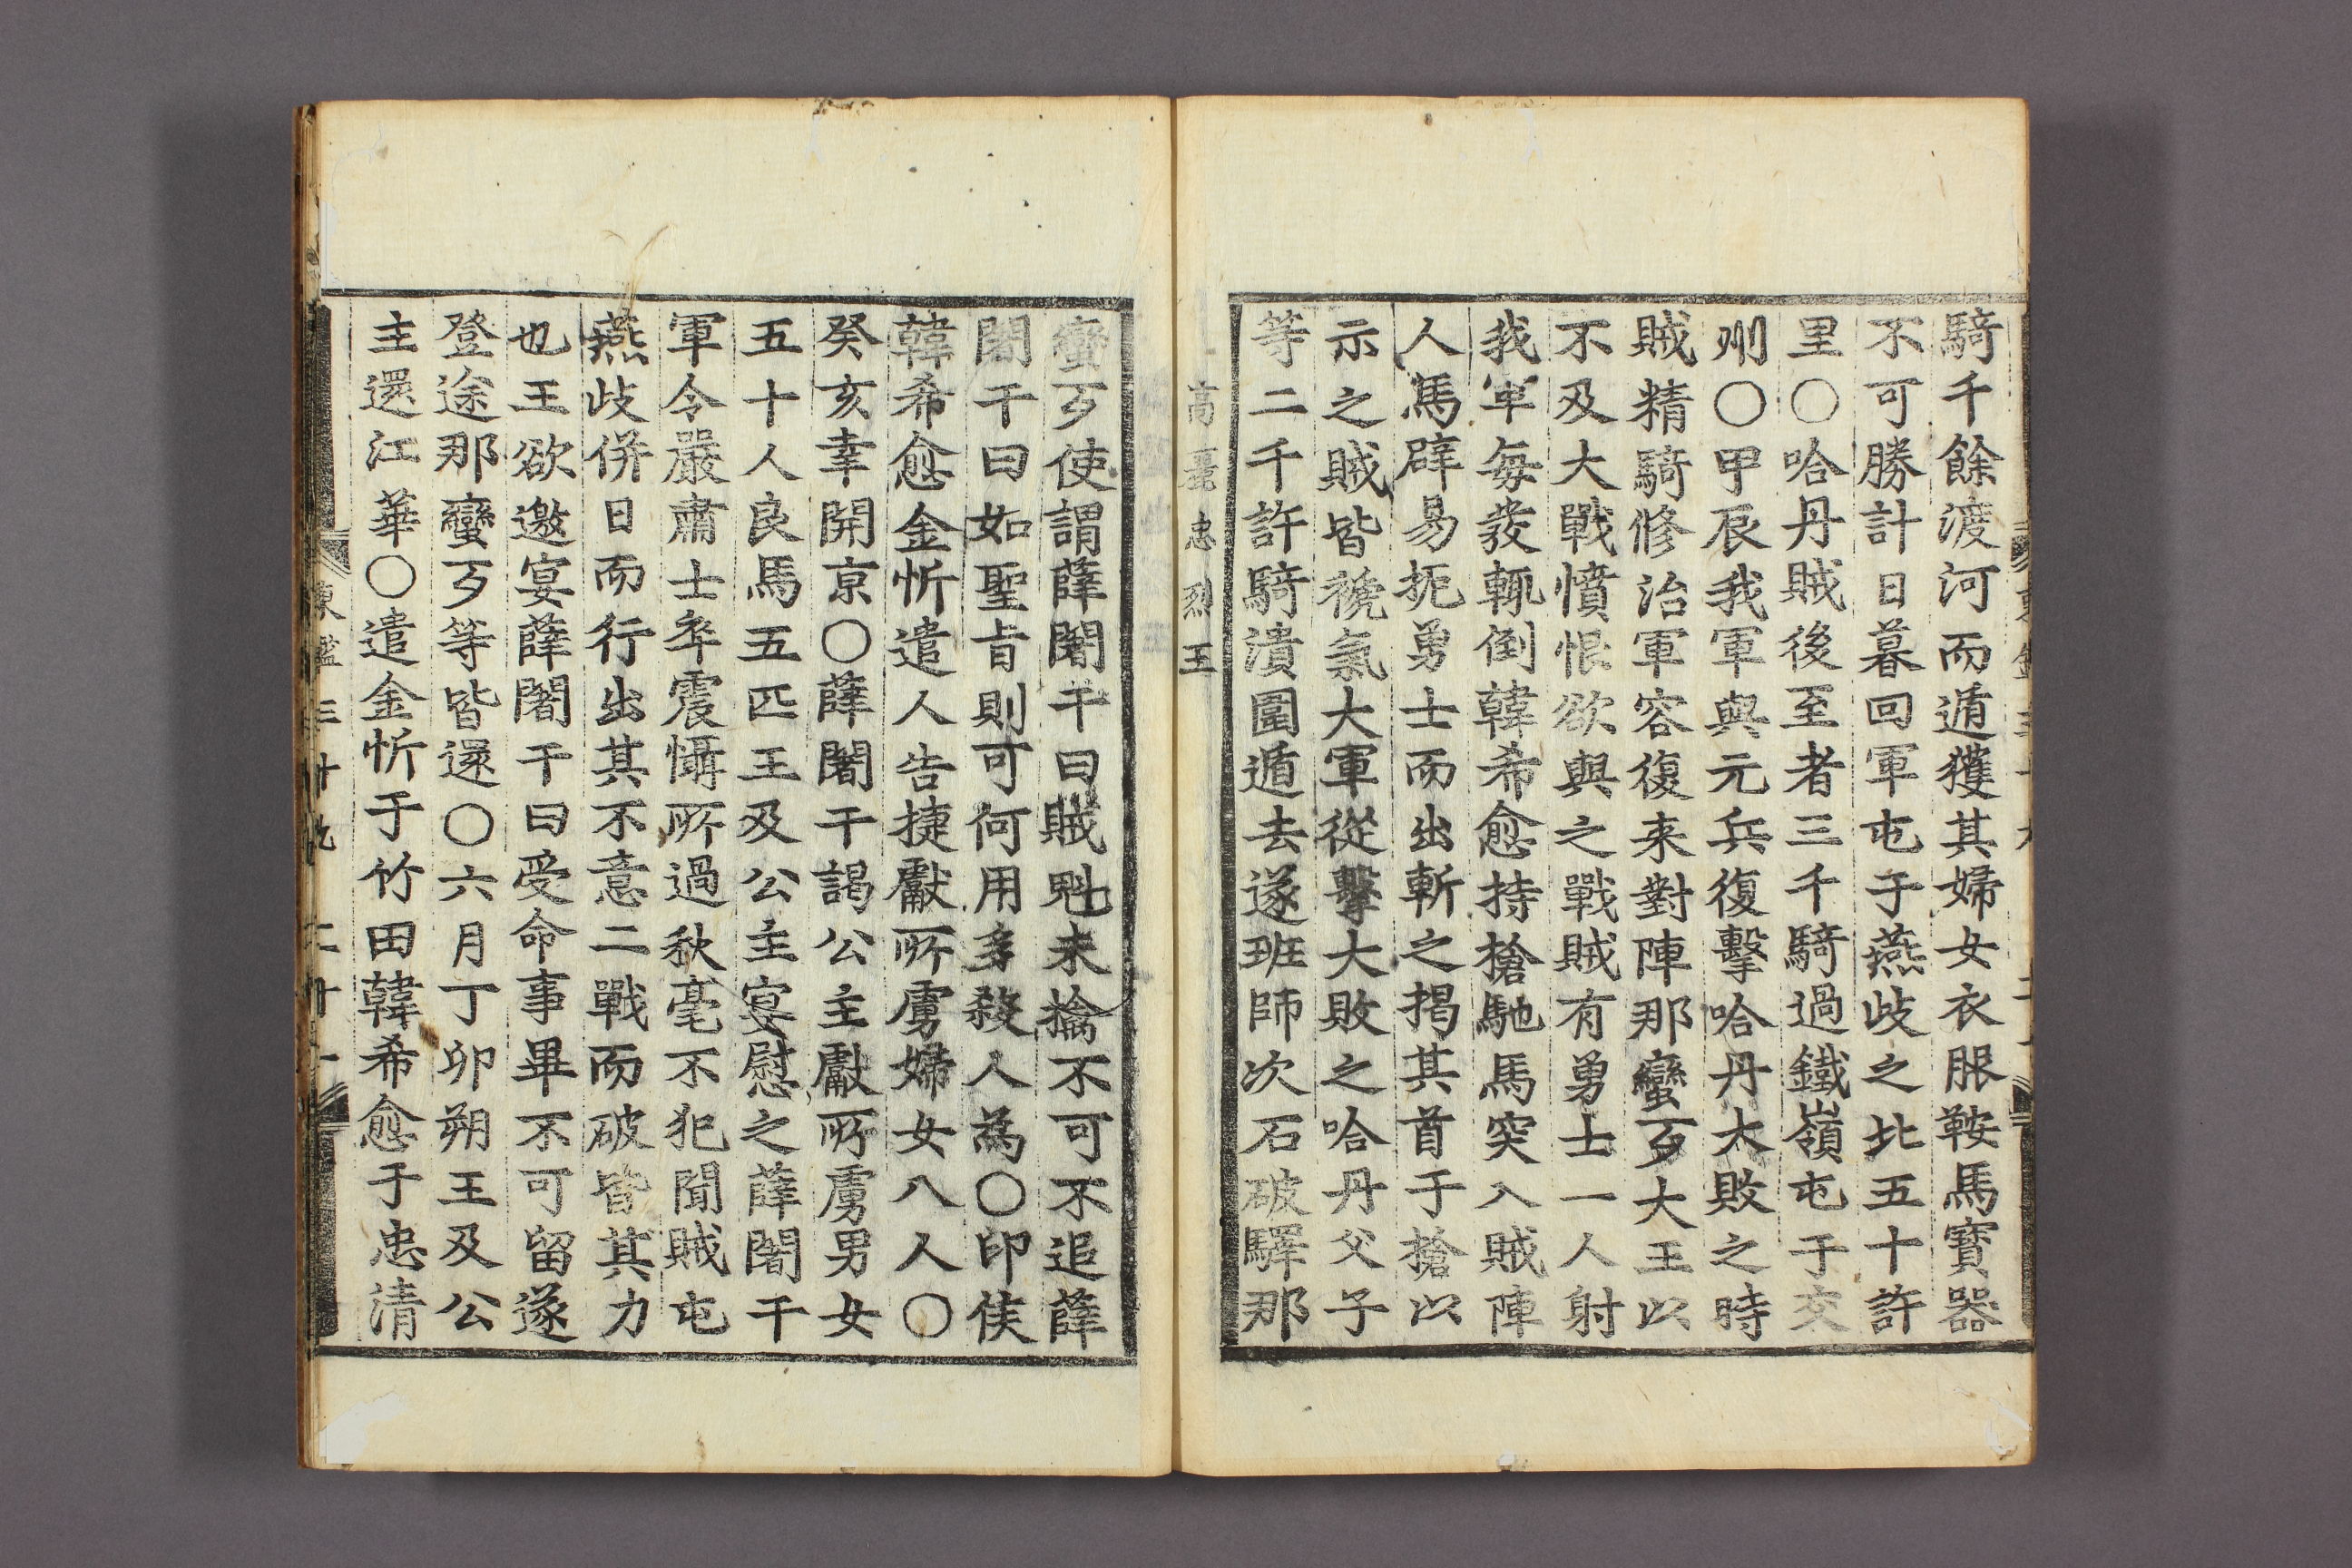 騎千餘渡河而遁獲其婦女衣服鞍馬寶器
不可勝計日暮回軍屯于燕歧之北五十許
里○哈丹賊後至者三千騎過鐵嶺屯于交
州○甲辰我軍與元兵復擊哈丹大敗之時
賊精騎修治軍容復来對陣那蠻歹大王以
不及大戰憤恨欲與之戰賊有勇士一人射
我军每發輒倒韓希愈持槍馳馬突入賊陣
人馬辟易扼勇士而出斬之揭其首于槍以
示之賊皆褫氣大軍從擊大敗之哈丹父子
等二千許騎潰圍遁去遂班師次石破驛那
高麗忠烈王
蠻歹使謂薛闍干曰賊魁未擒不可不追薛
闍干曰如聖旨則可何用多殺人為○印侯
韓希愈金忻遣人告捷獻所虜婦女八人○
癸亥幸開京○薛闍干謁公主獻所虜男女
五十人良馬五匹王及公主宴慰之薛闍干
軍令嚴肅士卒震懾所過秋毫不犯聞賊屯
燕歧併日而行出其不意二戰而破皆其力
也王欲邀宴薛闍干曰受命事畢不可留遂
登途那蠻歹等皆還○六月丁卯朔王及公
主還江華○遣金忻于竹田韓希愈于忠清
東鑑三十九 二十一